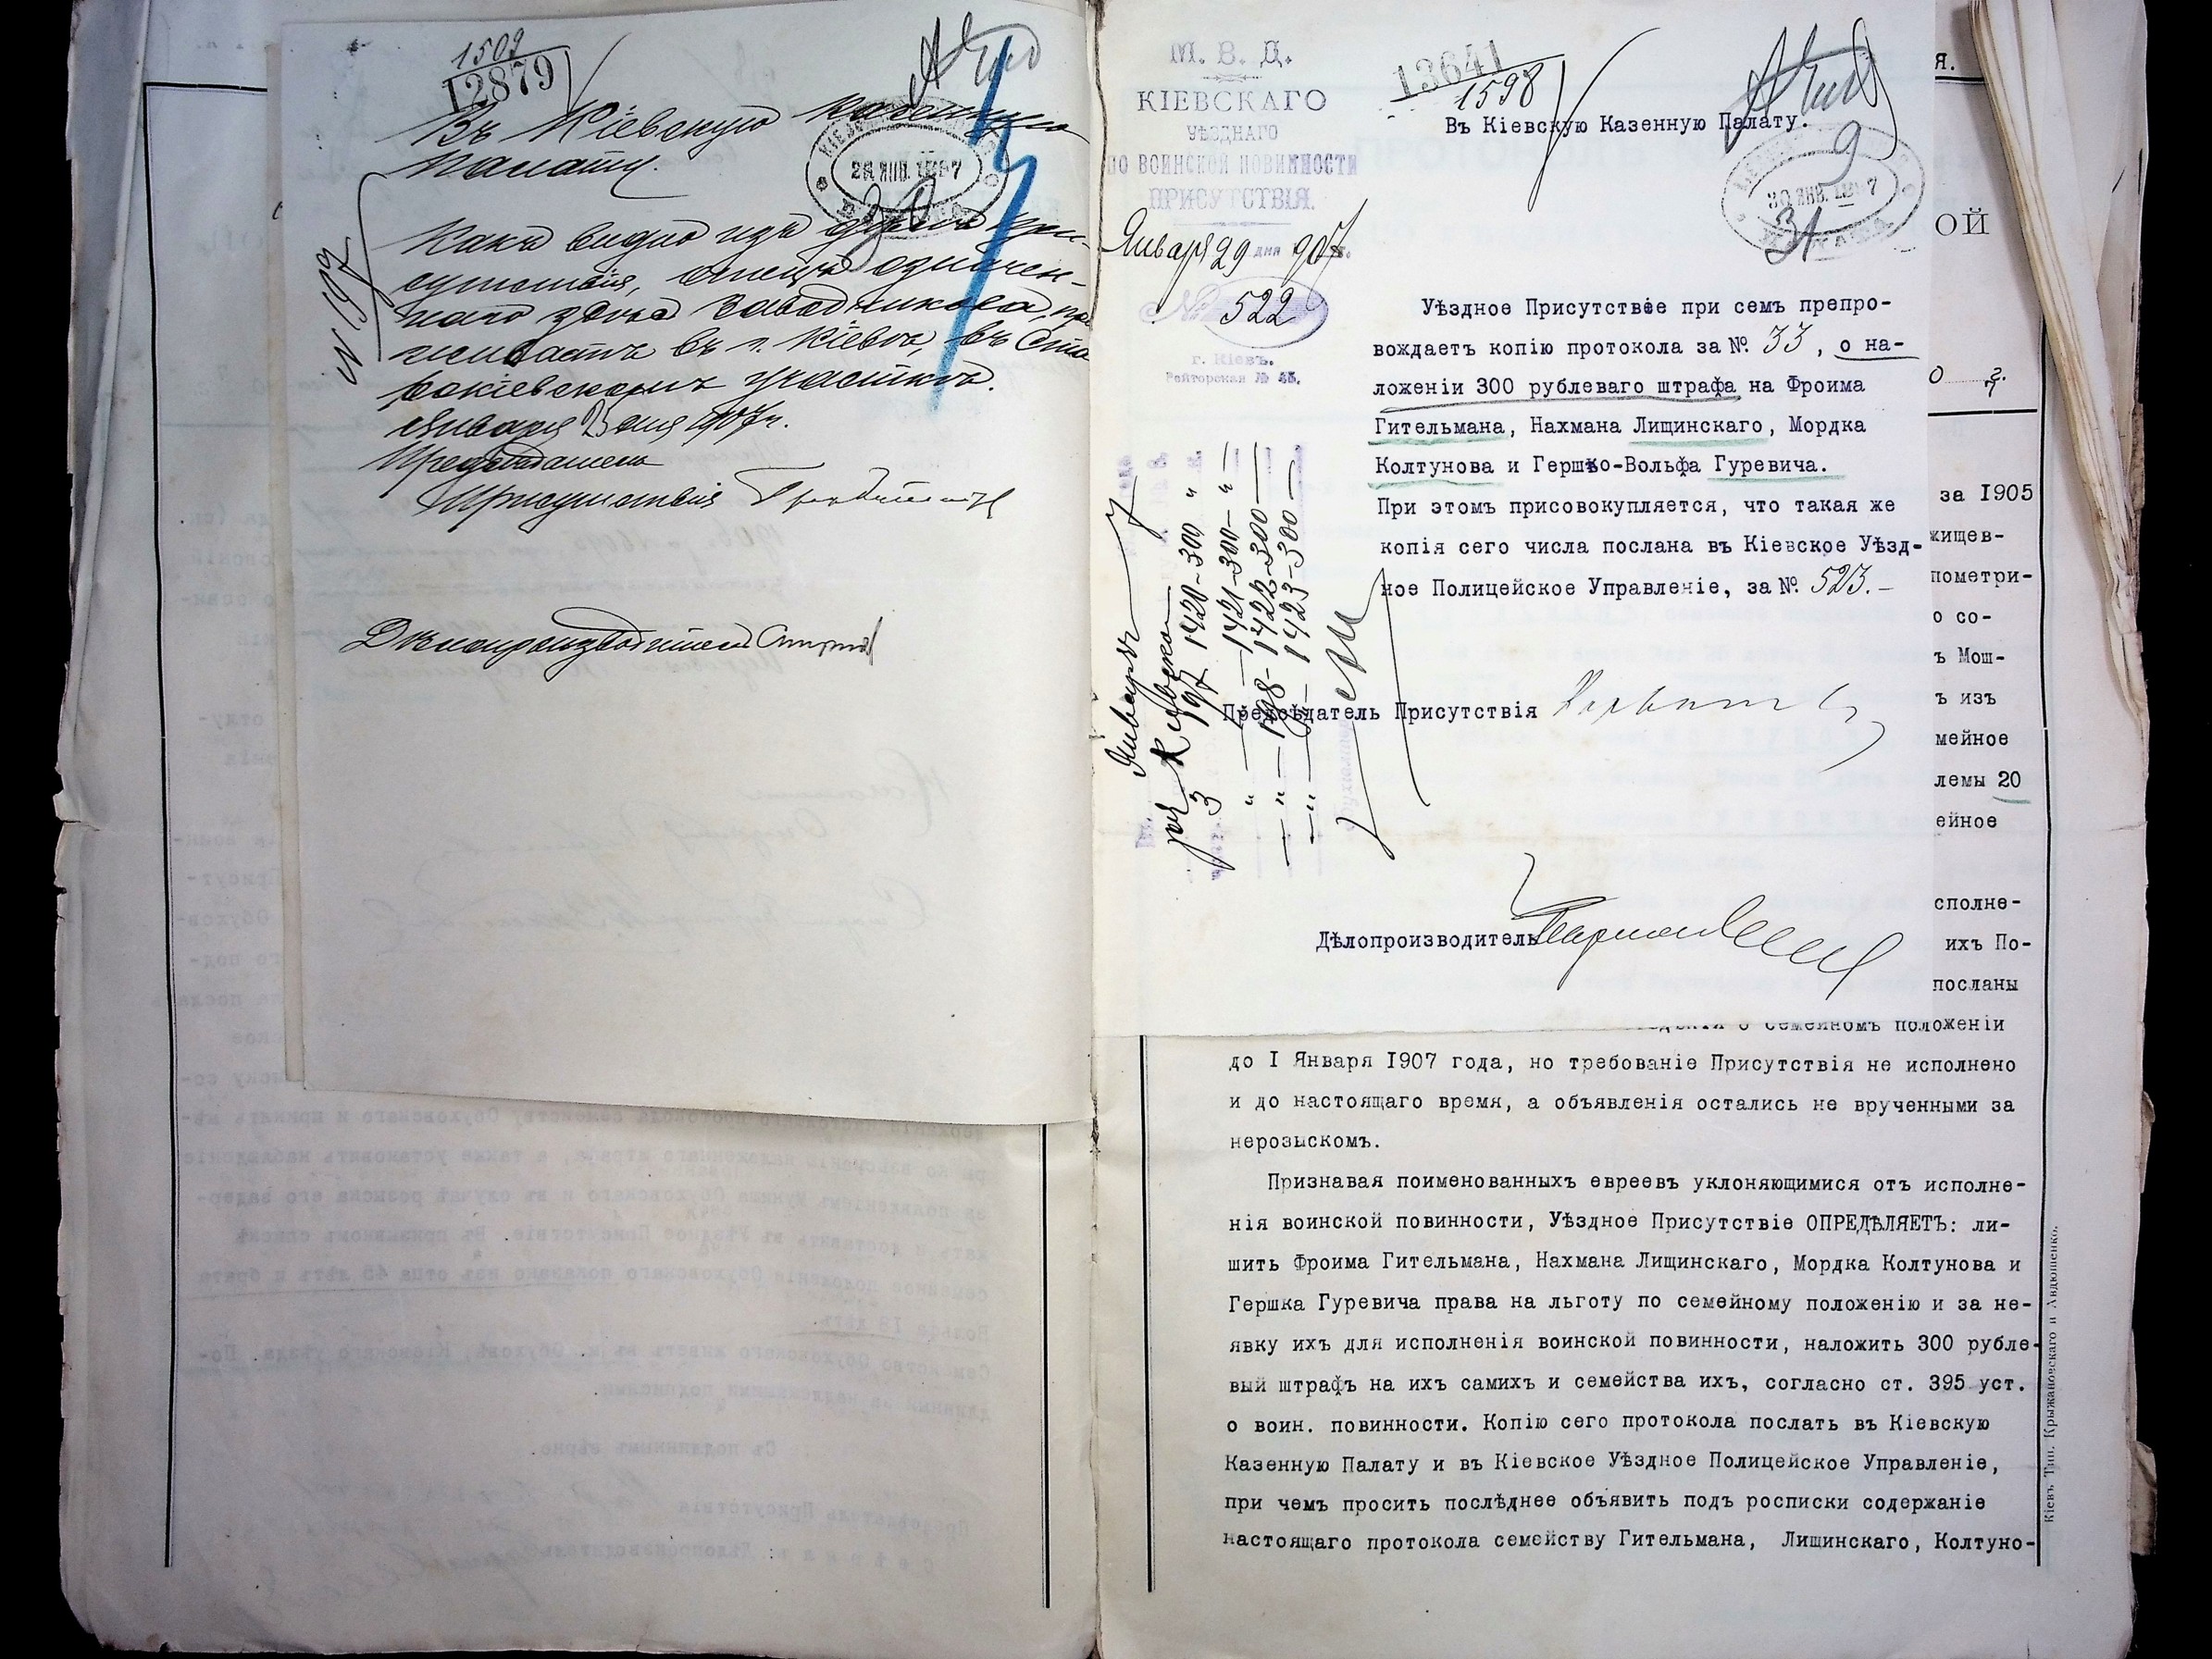 1509
12879
Въ Кіевскую Казенную
Палату.
28 ЯНВ. 1907
30
№ 197
Какъ видно изъ дѣлъ При-
сутствія, отецъ означен-
наго
Заводникова, про
живаетъ въ г. Кіевѣ, въ Ста
рокіевскомъ участкѣ.
Января 23 дня 1907 г.
Предсѣдатель
Присутствія
Дѣлопроизводитель
М. В. Д.
КІЕВСКАГО
УѢЗДНАГО
ПО ВОИНСКОЙ ПОВИННОСТИ
ПРИСУТСТВІЯ.
Января 29 дня 907 г.
№ 522
г. Кіевъ.
Рейторская №
13641
1598
Въ Кіевскую Казенную Палату.
9
30 ЯНВ. 1907
31
Уѣздное Присутствіе при семъ препро-
вождаетъ копію протокола за № 33, о на-
ложеніи 300 рублеваго штрафа на Фроима
Гительмана, Нахмана Лищинскаго, Мордка
Колтунова и Гершко-Вольфа Гуревича.
При этомъ присовокупляется, что такая же
копія сего числа послана въ Кіевское Уѣзд-
ное Полицейское Управленіе, за № 523.-
Январь 7
3 197 1420-300 "
" 1421-300- " -
" 198- 1422-300
" 1423-300
Предсѣдатель Присутствія
Дѣлопроизводитель
Я.
ОЙ
0 г.
за 1905
жищев-
пометри-
о со-
ъ Мош-
ъ изъ
мейное
лемы 20
ейное
сполне-
ихъ По-
посланы
о семейномъ положеніи
до I Января I907 года, но требованіе Присутствія не исполнено
и до настоящаго время, а объявленія остались не врученными за
нерозыскомъ.
Признавая поименованныхъ евреевъ уклоняющимися отъ исполне-
нія воинской повинности, Уѣздное Присутствіе ОПРЕДѢЛЯЕТЪ: ли-
шить Фроима Гительмана, Нахмана Лищинскаго, Мордка Колтунова и
Гершка Гуревича права на льготу по семейному положенію и за не-
явку ихъ для исполненія воинской повинности, наложить 300 рубле-
вый штрафъ на ихъ самихъ и семейства ихъ, согласно ст. 395 уст.
о воин. повинности. Копію сего протокола послать въ Кіевскую
Казенную Палату и въ Кіевское Уѣздное Полицейское Управленіе,
при чемъ просить послѣднее объявить подъ росписки содержаніе
настоящаго протокола семейству Гительмана, Лищинскаго, Колтуно-
Кіевъ. Тип. Крыжановскаго и Авдюшенко.